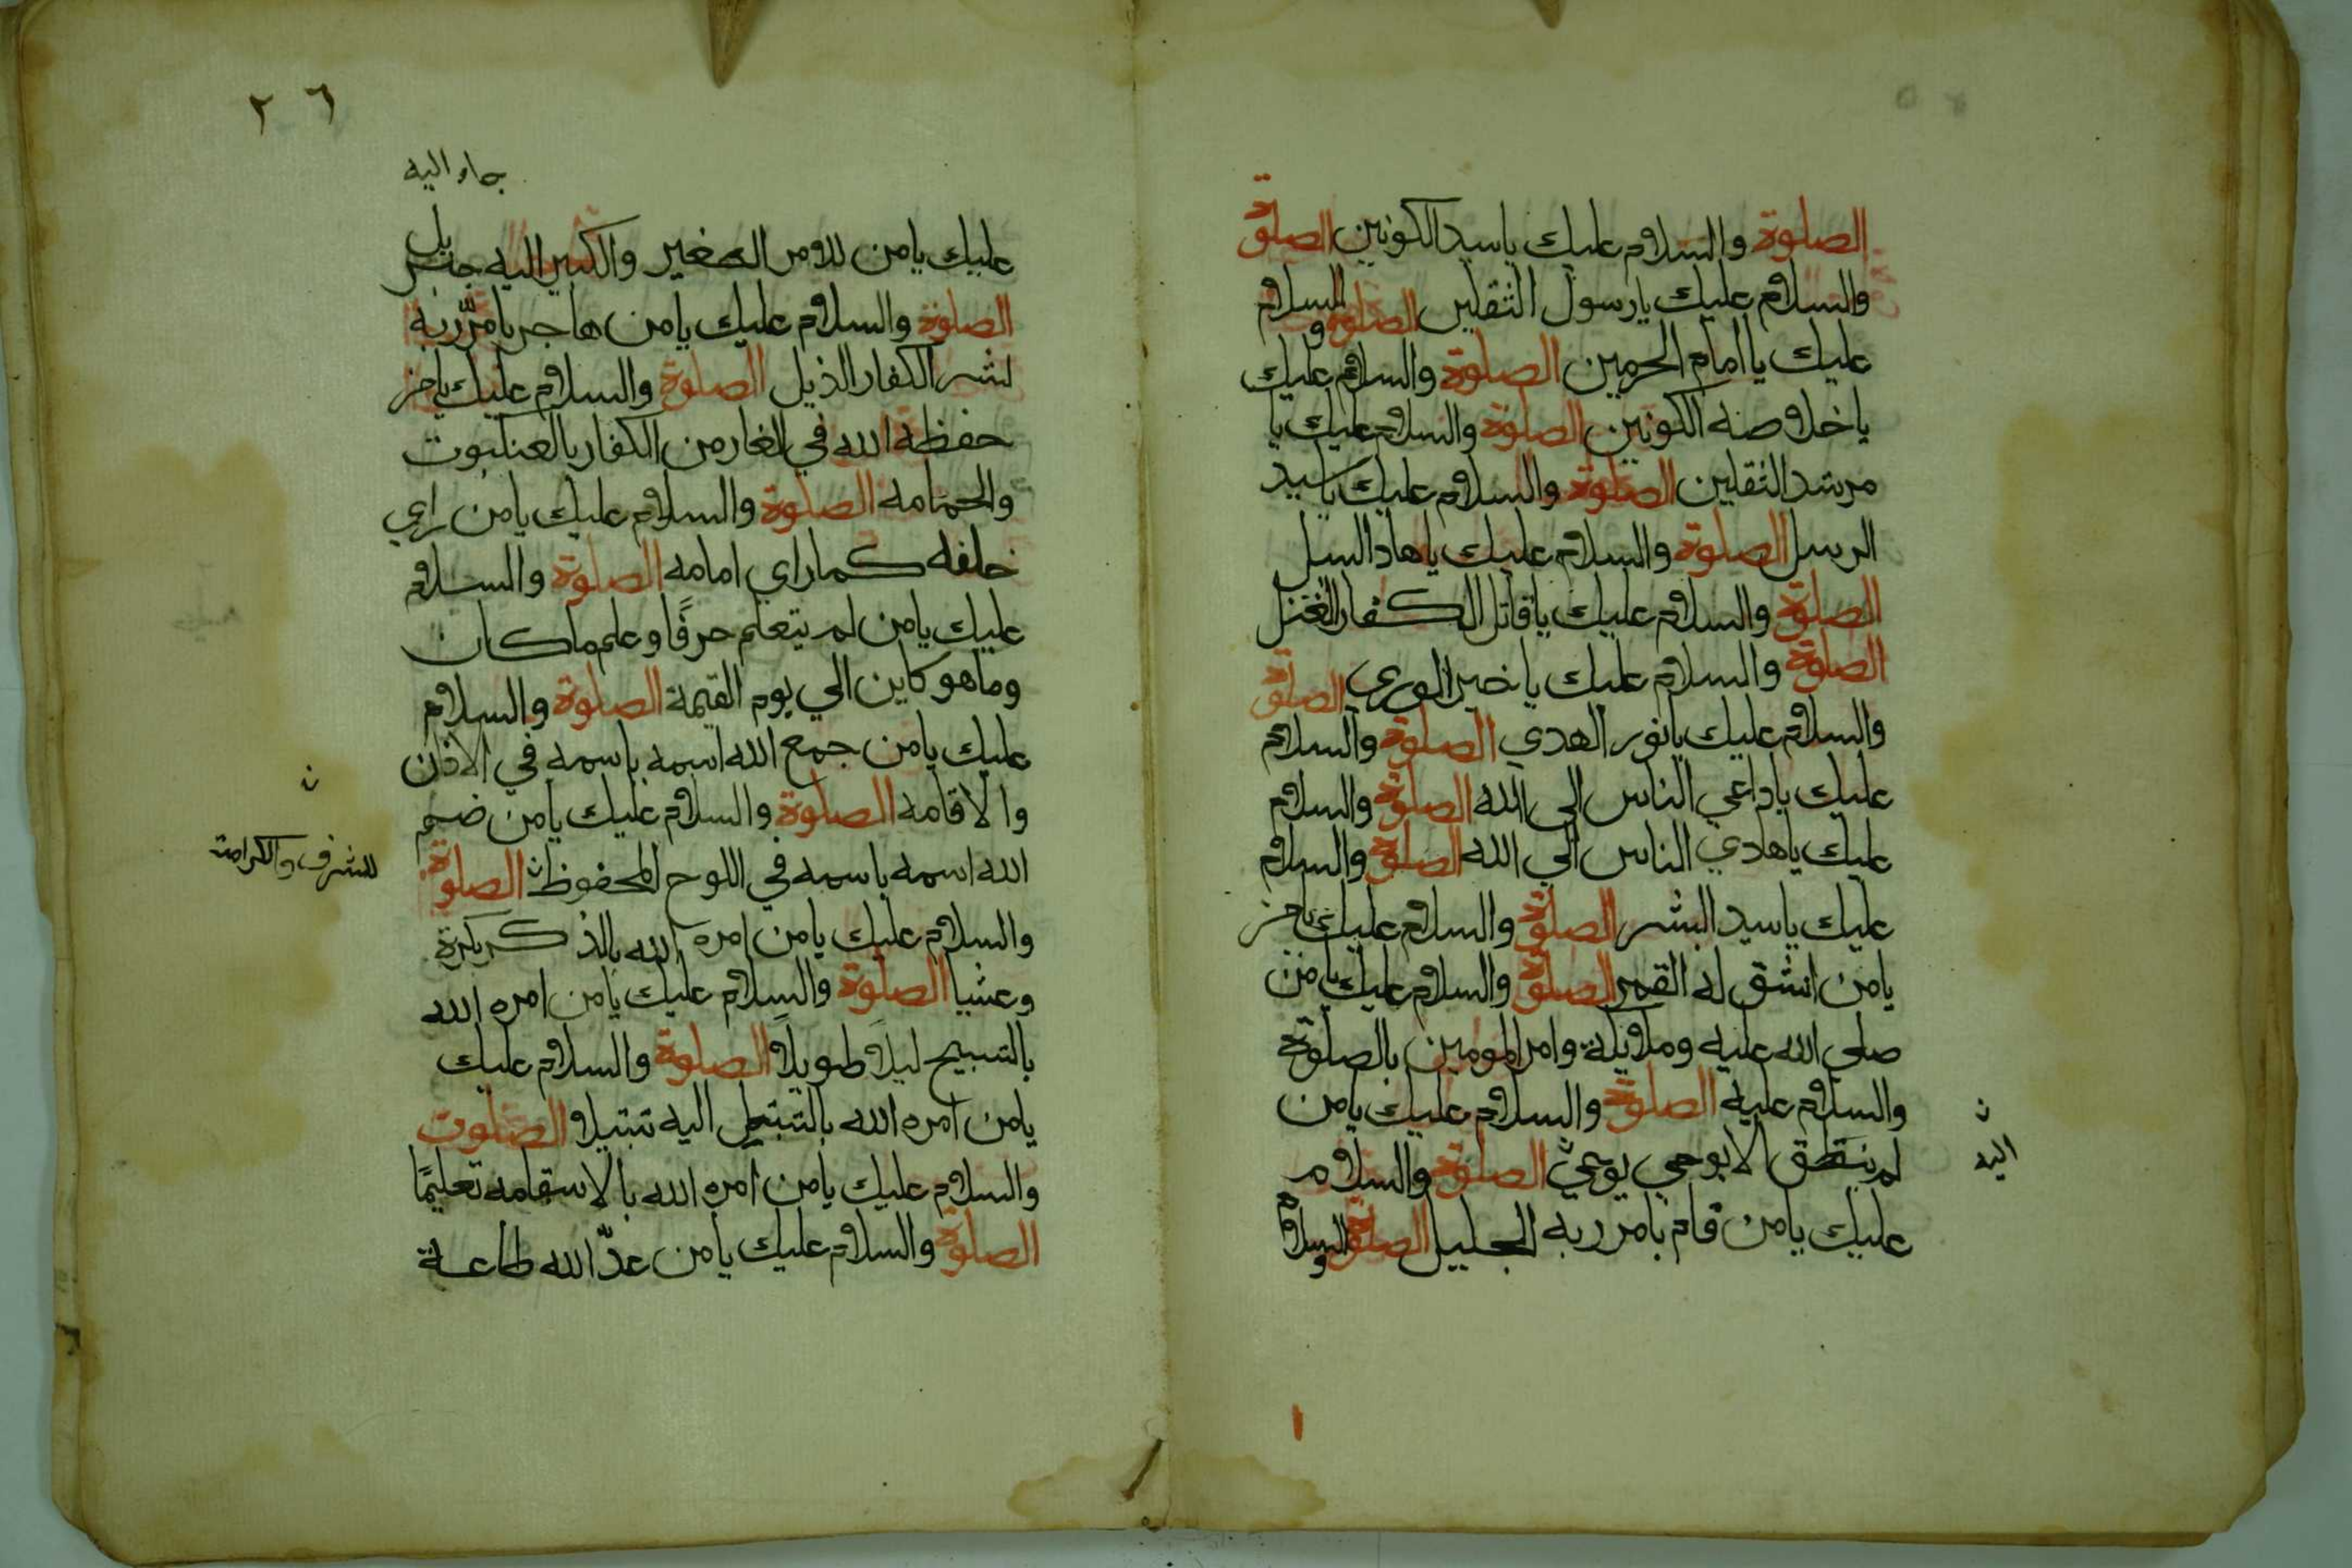 الصلوة والسلام عليك ياسيد الكونين الصلوة
والسلام عليك يارسول الثقلين الصلوة و السلام
عليك يا امام الحرمين الصلوة والسلام عليك
ياخلاوصنه الكونين الصلوة والسلام عليك يا
مرشد الثقلين الصلوة والسلام عليك ياسيد
الرسل الصلوة والسلام عليك ياهاد السبل
الصلوة والسلام عليك ياقاتل الكفار
الصلوة والسلام عليك ياخير الوري الصلوة
والسلام عليك يانور الهدي الصلوة والسلام
عليك ياداعي الناس الي الله الصلوة والسلام
عليك ياهادي الناس الي الله الصلوة والسلام
عليك ياسيد البشر الصلوة والسلام عليك يامن
يامن انشق له القمر الصلوة والسلام عليك يامن
صلي الله عليه وملايكة وامر المومين بالصلوة
والسلام عليه الصلوة والسلام عليك يامن
لم ينطق الا بوحي يوحي ن الصلوة والسلام
ن
اليه
عليك يامن قام بامر ربه الجليل الصلوة والسلام
١
٢٦
جاء اليه
عليك يامن للامر الصغير والكبير اليه جبريل
الصلوة والسلام عليك يامن هاجر بامر ربه
لشر الكفار الذيل الصلوة والسلام عليك يامن
حفظه الله في الغار من الكفار بالعنكبوت
والحمامه الصلوة والسلام عليك يامن راي
خلفه كما راي امامه الصلوة والسلام
عليك يامن لم يتعلم حرفًا وعلم ماكان
وماهو كاين الي يوم القيمة الصلوة والسلام
عليك يامن جمع الله اسمه باسمه في الاذان
والاقامه الصلوة والسلام عليك يامن ضم
الله اسمه باسمه في اللوح المحفوظ ن الصلوة
ن
للشرف والكرامة
والسلام عليك يامن امره الله بالذكر بكرة
وعشيا الصلوة والسلام عليك يامن امره الله
بالتسبيح ليلا طويلا الصلوة والسلام عليك
يامن امره الله بالتبتل اليه تبتيلا الصلوت
والسلام عليك يامن امره الله بالاستقامه تعليمًا
الصلوة والسلام عليك يامن عدّ الله طاعة